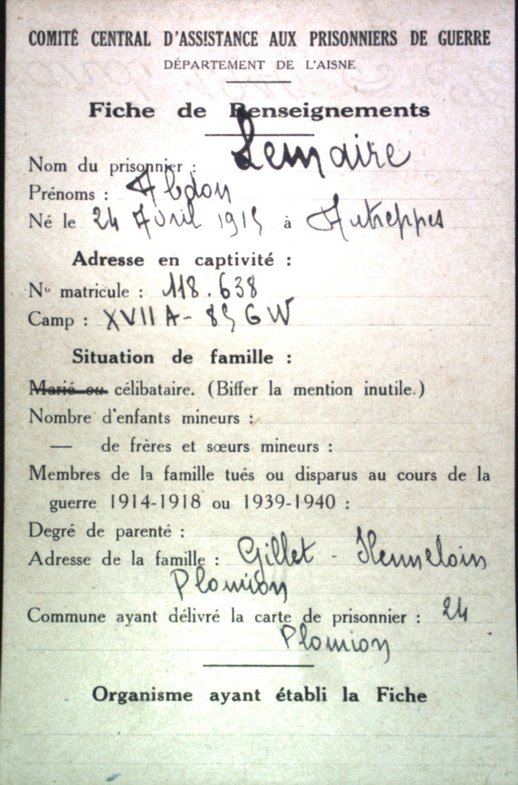 COMITÉ CENTRAL D'ASSISTANCE AUX PRISONNIERS DE GUERRE
DÉPARTEMENT DE L'AISNE
Fiche de Renseignements
Nom du prisonnier : Lemaire
Prénoms : Abdon
Né le 24 Avril 1915 à Autreppes
Adresse en captivité :
No matricule : 118.638
Camp : XVII A - 85 GW
Situation de famille :
Marié ou célibataire. (Biffer la mention inutile.)
Nombre d'enfants mineurs :
— de frères et sœurs mineurs :
Membres de la famille tués ou disparus au cours de la
guerre 1914-1918 ou 1939-1940 :
Degré de parenté :
Adresse de la famille : Gillet -
Plomion
Commune ayant délivré la carte de prisonnier : 24
Plomion
Organisme ayant établi la Fiche